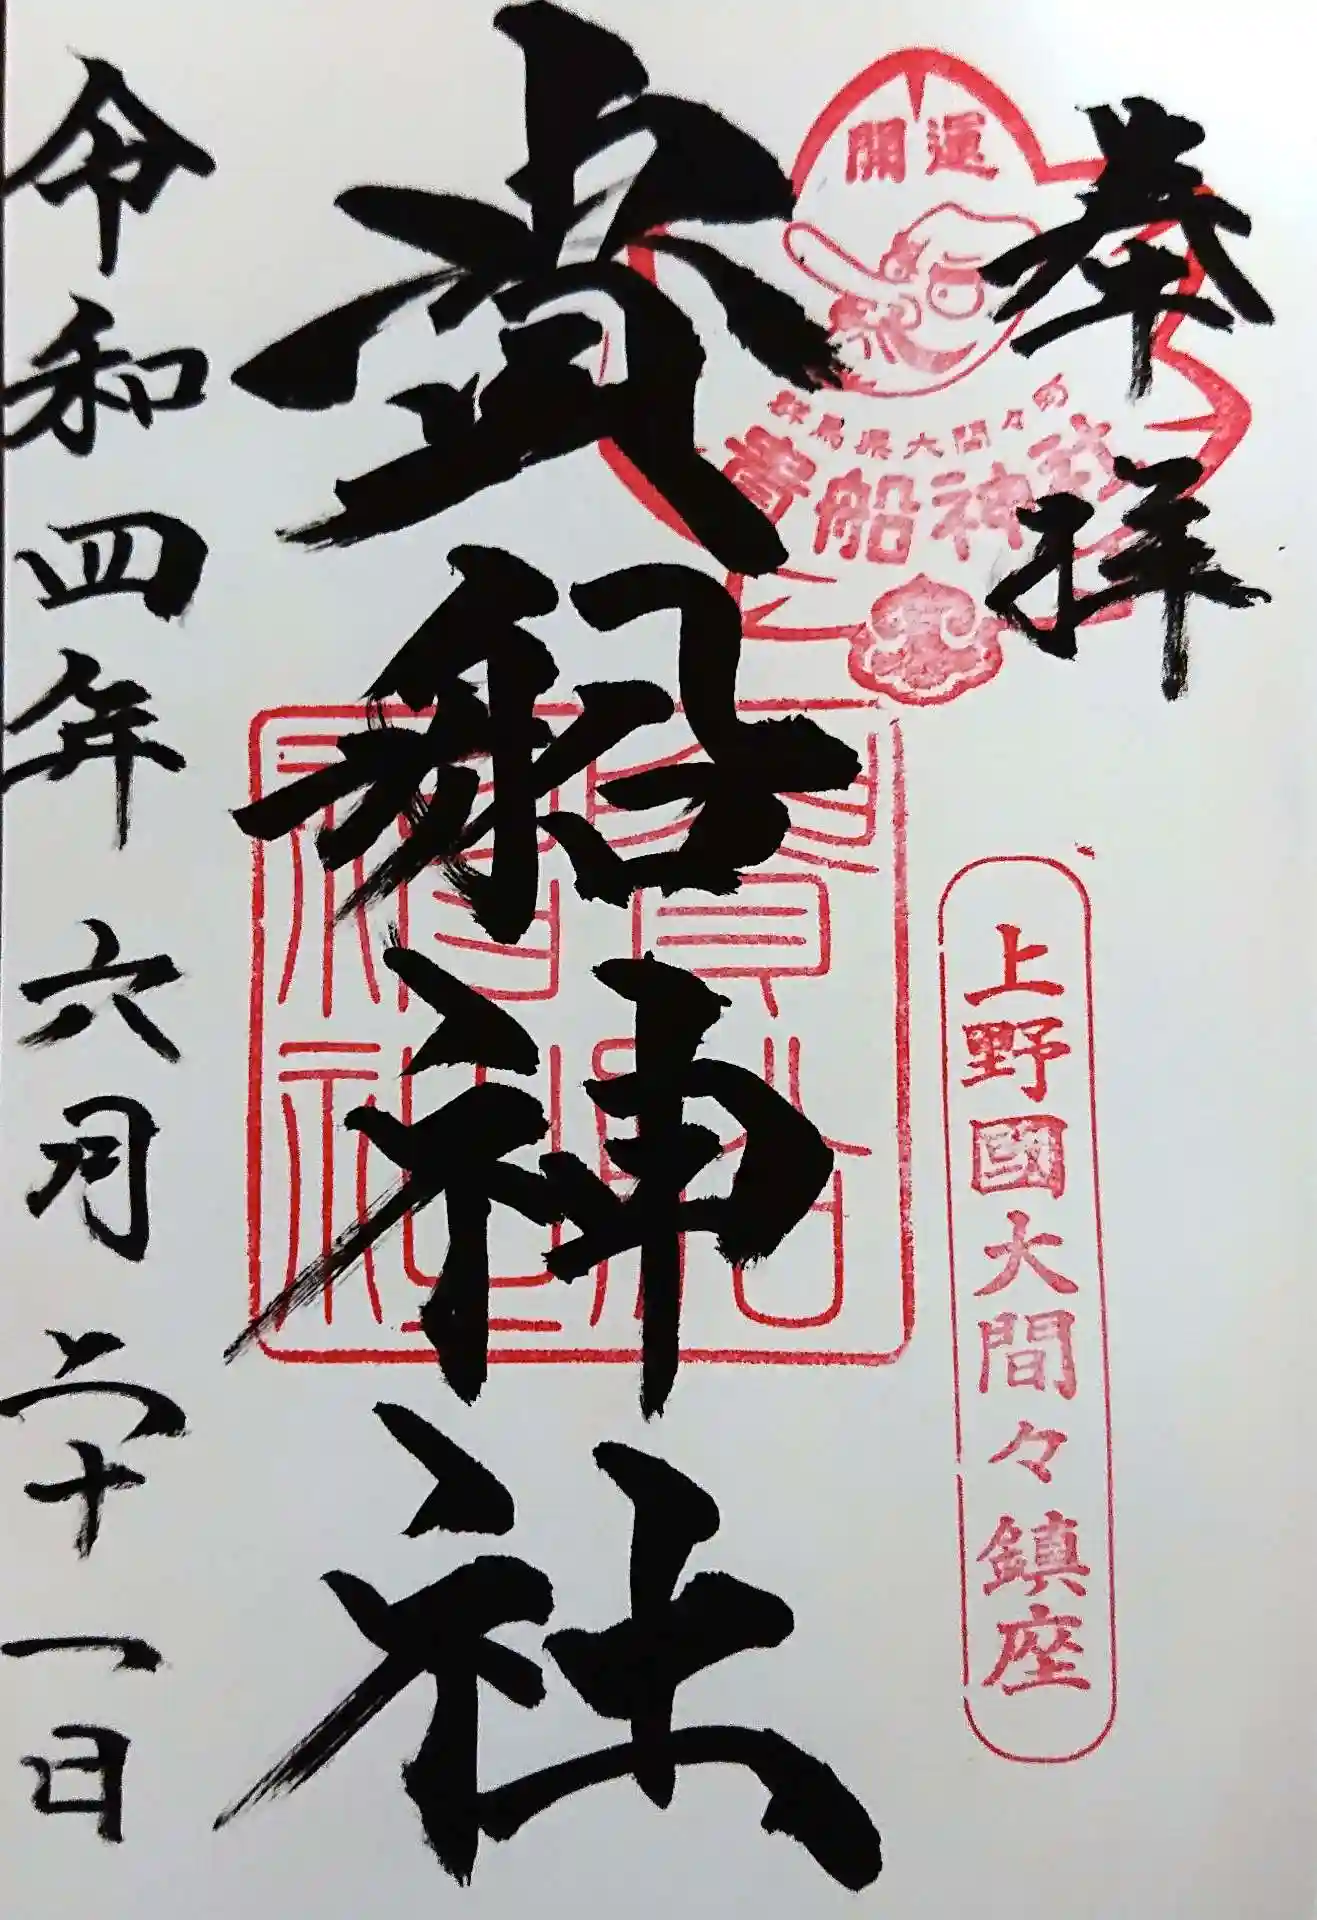 奉拝
開運
群馬県大間々の
貴船神社
上野國大間々鎮座
貴船神社
貴船
神社
令和四年六月二十一日